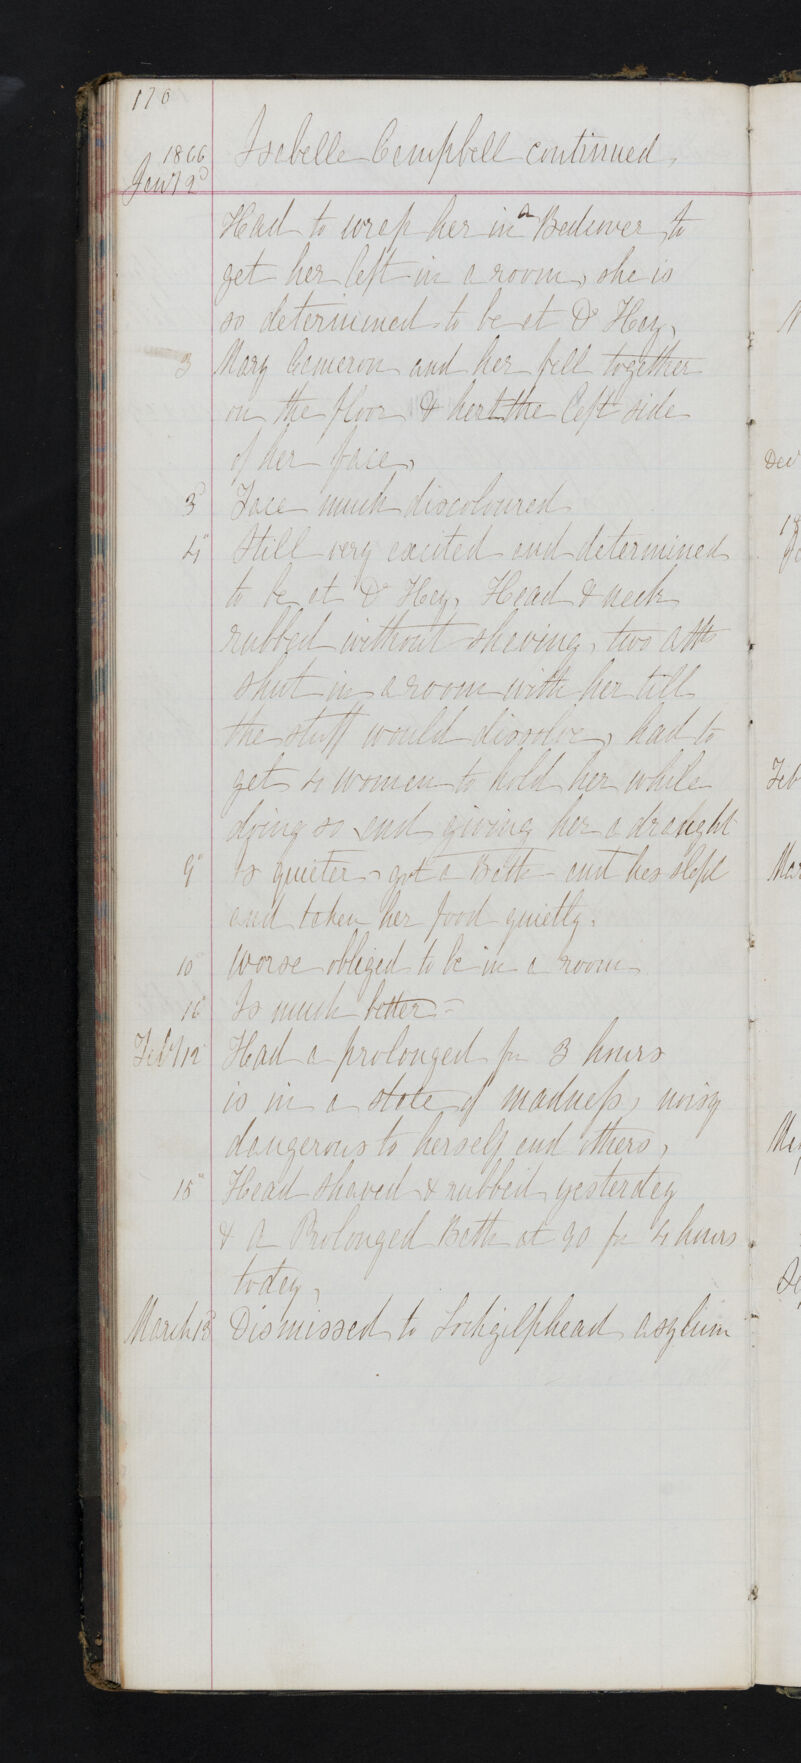 170
1866 Isabella Campbell continued.
Jany 2d
Had to wrap her in a Bedcover to
get her left in a room, she is
so determined to be at Dr Hay,
3 Mary Cameron and her fell together
on the floor & hert the left side
of her face,
3d Face much discoloured
4" Still very excited and determined
to be at Dr Hay, Head & neck
rubbed without shaving, two atts
shut in a room with her till
the stuff would dissolve, had to
get 4 women to hold her while
doing so and giving her a draught
9" Is quieter, got a Bath and has slept
and taken her food quietly.
10 Worse obliged to be in a room
16 Is much better =
Feby 12 Had a prolonged for 3 hours
is in a state of madness, noisy
dangerous to herself and others,
15" Head shaved & rubbed yesterday
& a Prolonged Bath at 90 for 4 hours
today,
March 13 Dismissed to Lochgilphead asylum
N
Dev
18
Feb
Mar